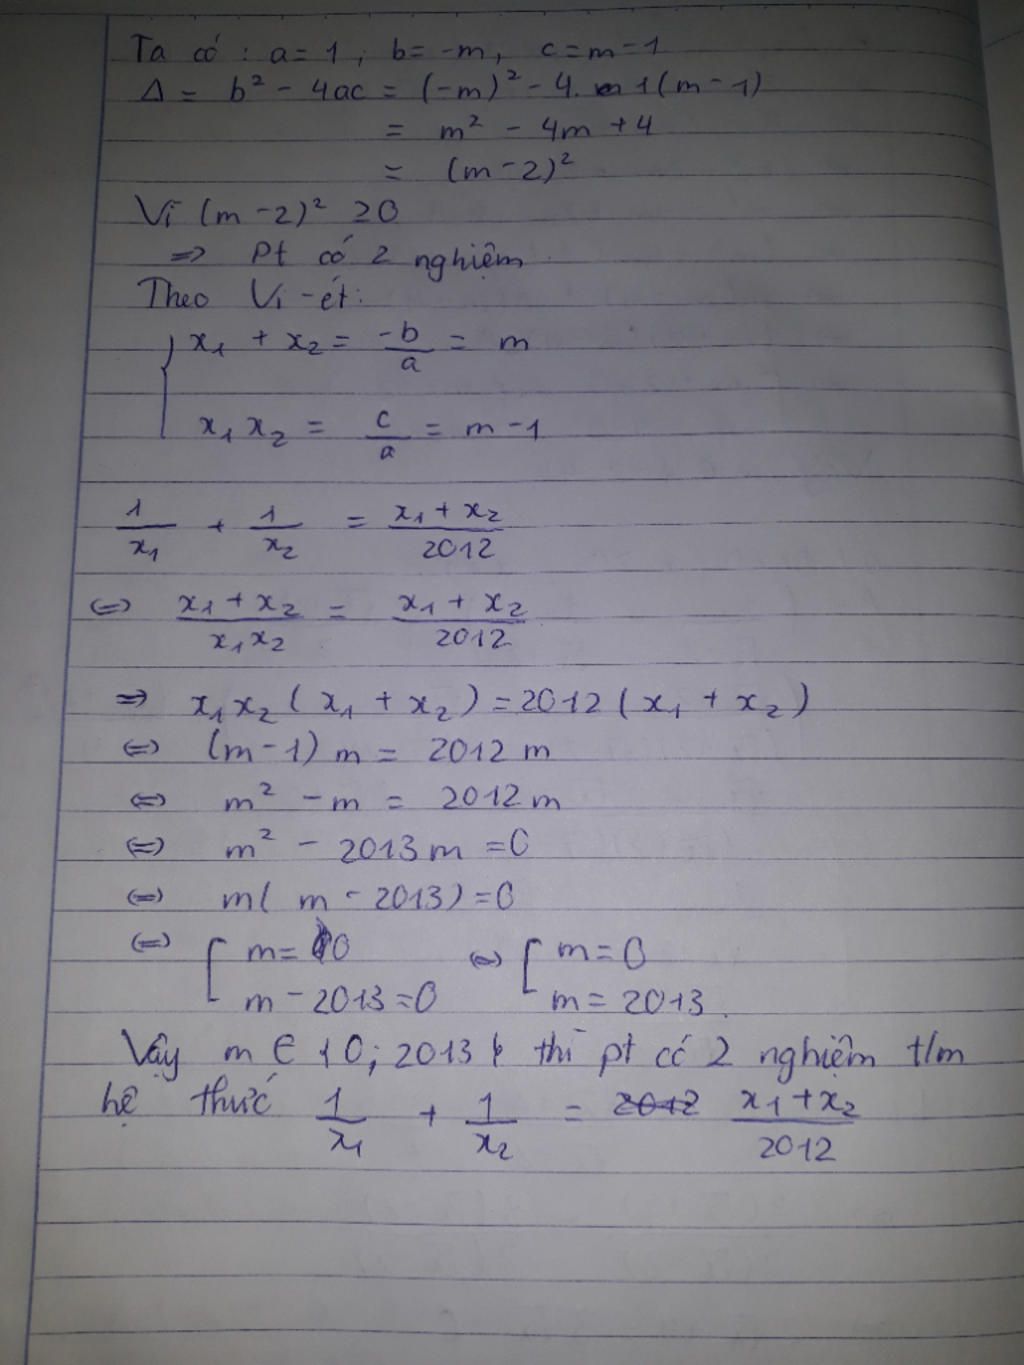 Ta có : a = 1 , b = -m, c = m - 1
Δ = b² - 4ac = (-m)² - 4. 1(m - 1)
= m² - 4m + 4
= (m - 2)²
Vì (m - 2)² ≥ 0
=> Pt có 2 nghiệm
Theo Vi-ét:
{ x₁ + x₂ = -b/a = m
x₁ x₂ = c/a = m - 1
1/x₁ + 1/x₂ = x₁ + x₂/2012
<=> x₁ + x₂/x₁x₂ = x₁ + x₂/2012
=> x₁x₂ ( x₁ + x₂ ) = 2012 ( x₁ + x₂ )
<=> (m - 1) m = 2012 m
<=> m² - m = 2012 m
<=> m² - 2013 m = 0
<=> m( m - 2013) = 0
<=> [ m = 0 <=> [ m = 0
m - 2013 = 0 m = 2013.
Vậy m ∈ {0; 2013} thì pt có 2 nghiệm t/m
hệ thức 1/x₁ + 1/x₂ = 2012 x₁ + x₂/2012